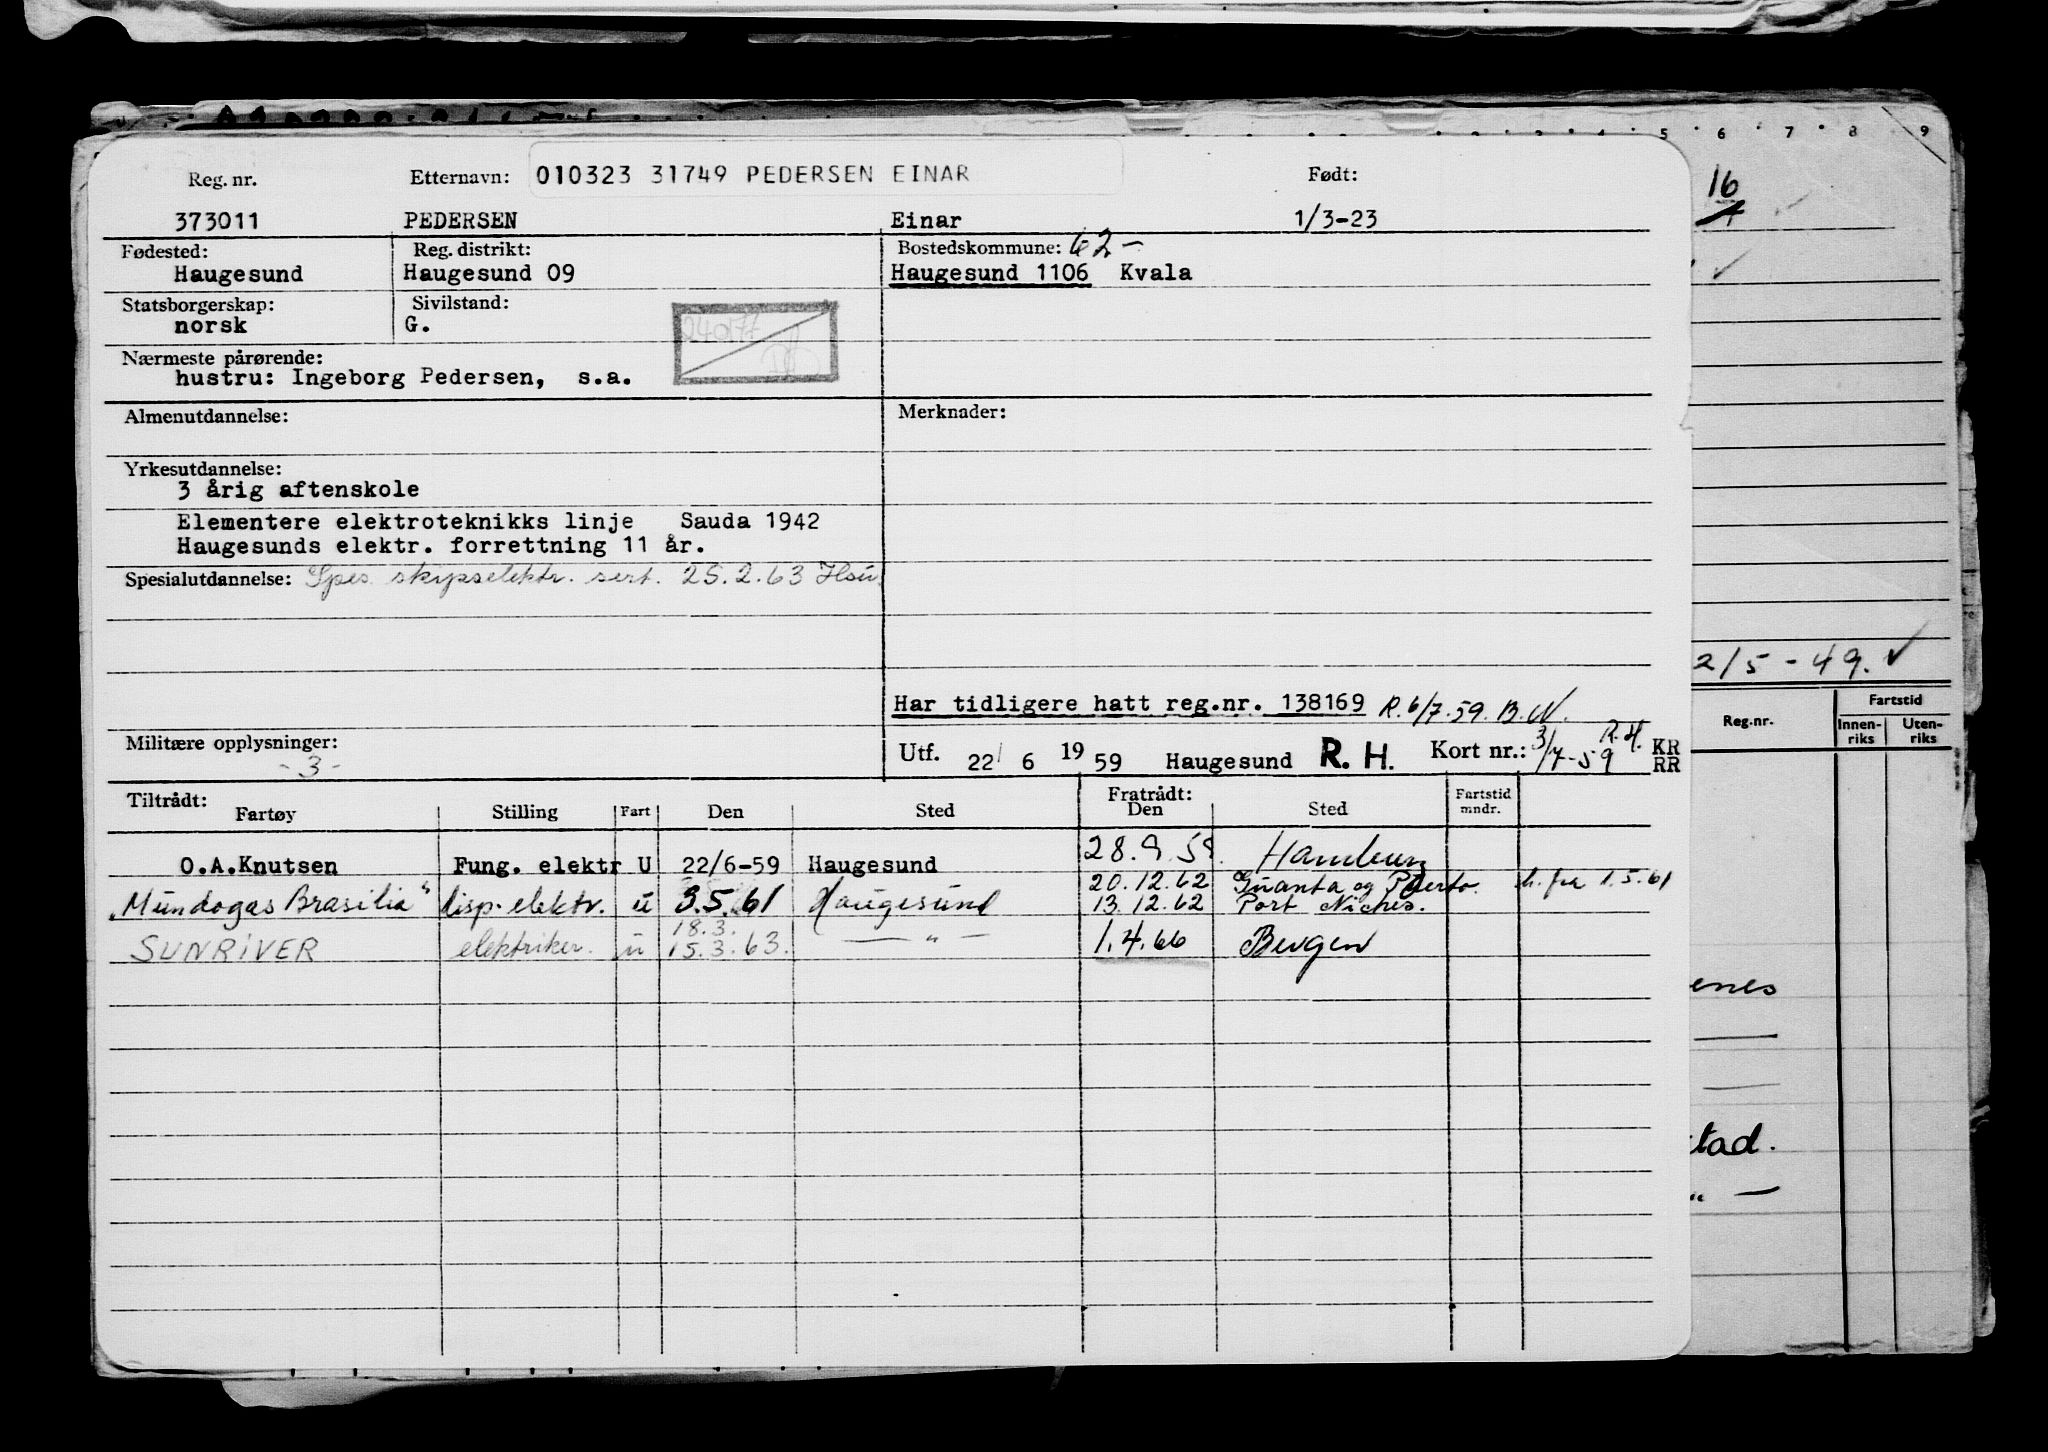 5 6 7 8 9
16
Reg. nr. Etternavn: 010323 31749 PEDERSEN EINAR Født:
373011 PEDERSEN Einar 1/3-23
Fødested: Reg. distrikt: Bostedskommune: 62-
Haugesund Haugesund 09 Haugesund 1106 Kvala
Statsborgerskap: Sivilstand:
norsk G.
240177
Nærmeste pårørende:
hustru: Ingeborg Pedersen, s.a.
Almenutdannelse: Merknader:
Yrkesutdannelse:
3 årig aftenskole
Elementere elektroteknikks linje Sauda 1942
Haugesunds elektr. forrettning 11 år.
Spesialutdannelse: Spes skipselektr. sert. 25.2.63 Hsu.
2/5-49. ✓
Har tidligere hatt reg.nr. 138169 R. 6/7.59. B.W.
Militære opplysninger: Utf. 22/ 6 1959 Haugesund R. H. Kort nr.: 3/7-59 R.H. KR
-3- RR
Reg.nr. Fartstid
Innen-riks Uten-riks
Tiltrådt: Fratrådt: Fartstid
Fartøy Stilling Fart Den Sted Den Sted mndr.
O.A.Knutsen Fung. elektr U 22/6-59 Haugesund 28.9.59. Hamburg
20.12.62 Guanta og Puerto. h. fra 1.5.61
"Mundogas Brasilia" disp. elektr. u 3.5.61 Haugesund 13.12.62 Port Niches.
18.3.
SUNRIVER elektriker. u 15.3.63. — " — 1.4.66 Bergen
enes
tad.
" —